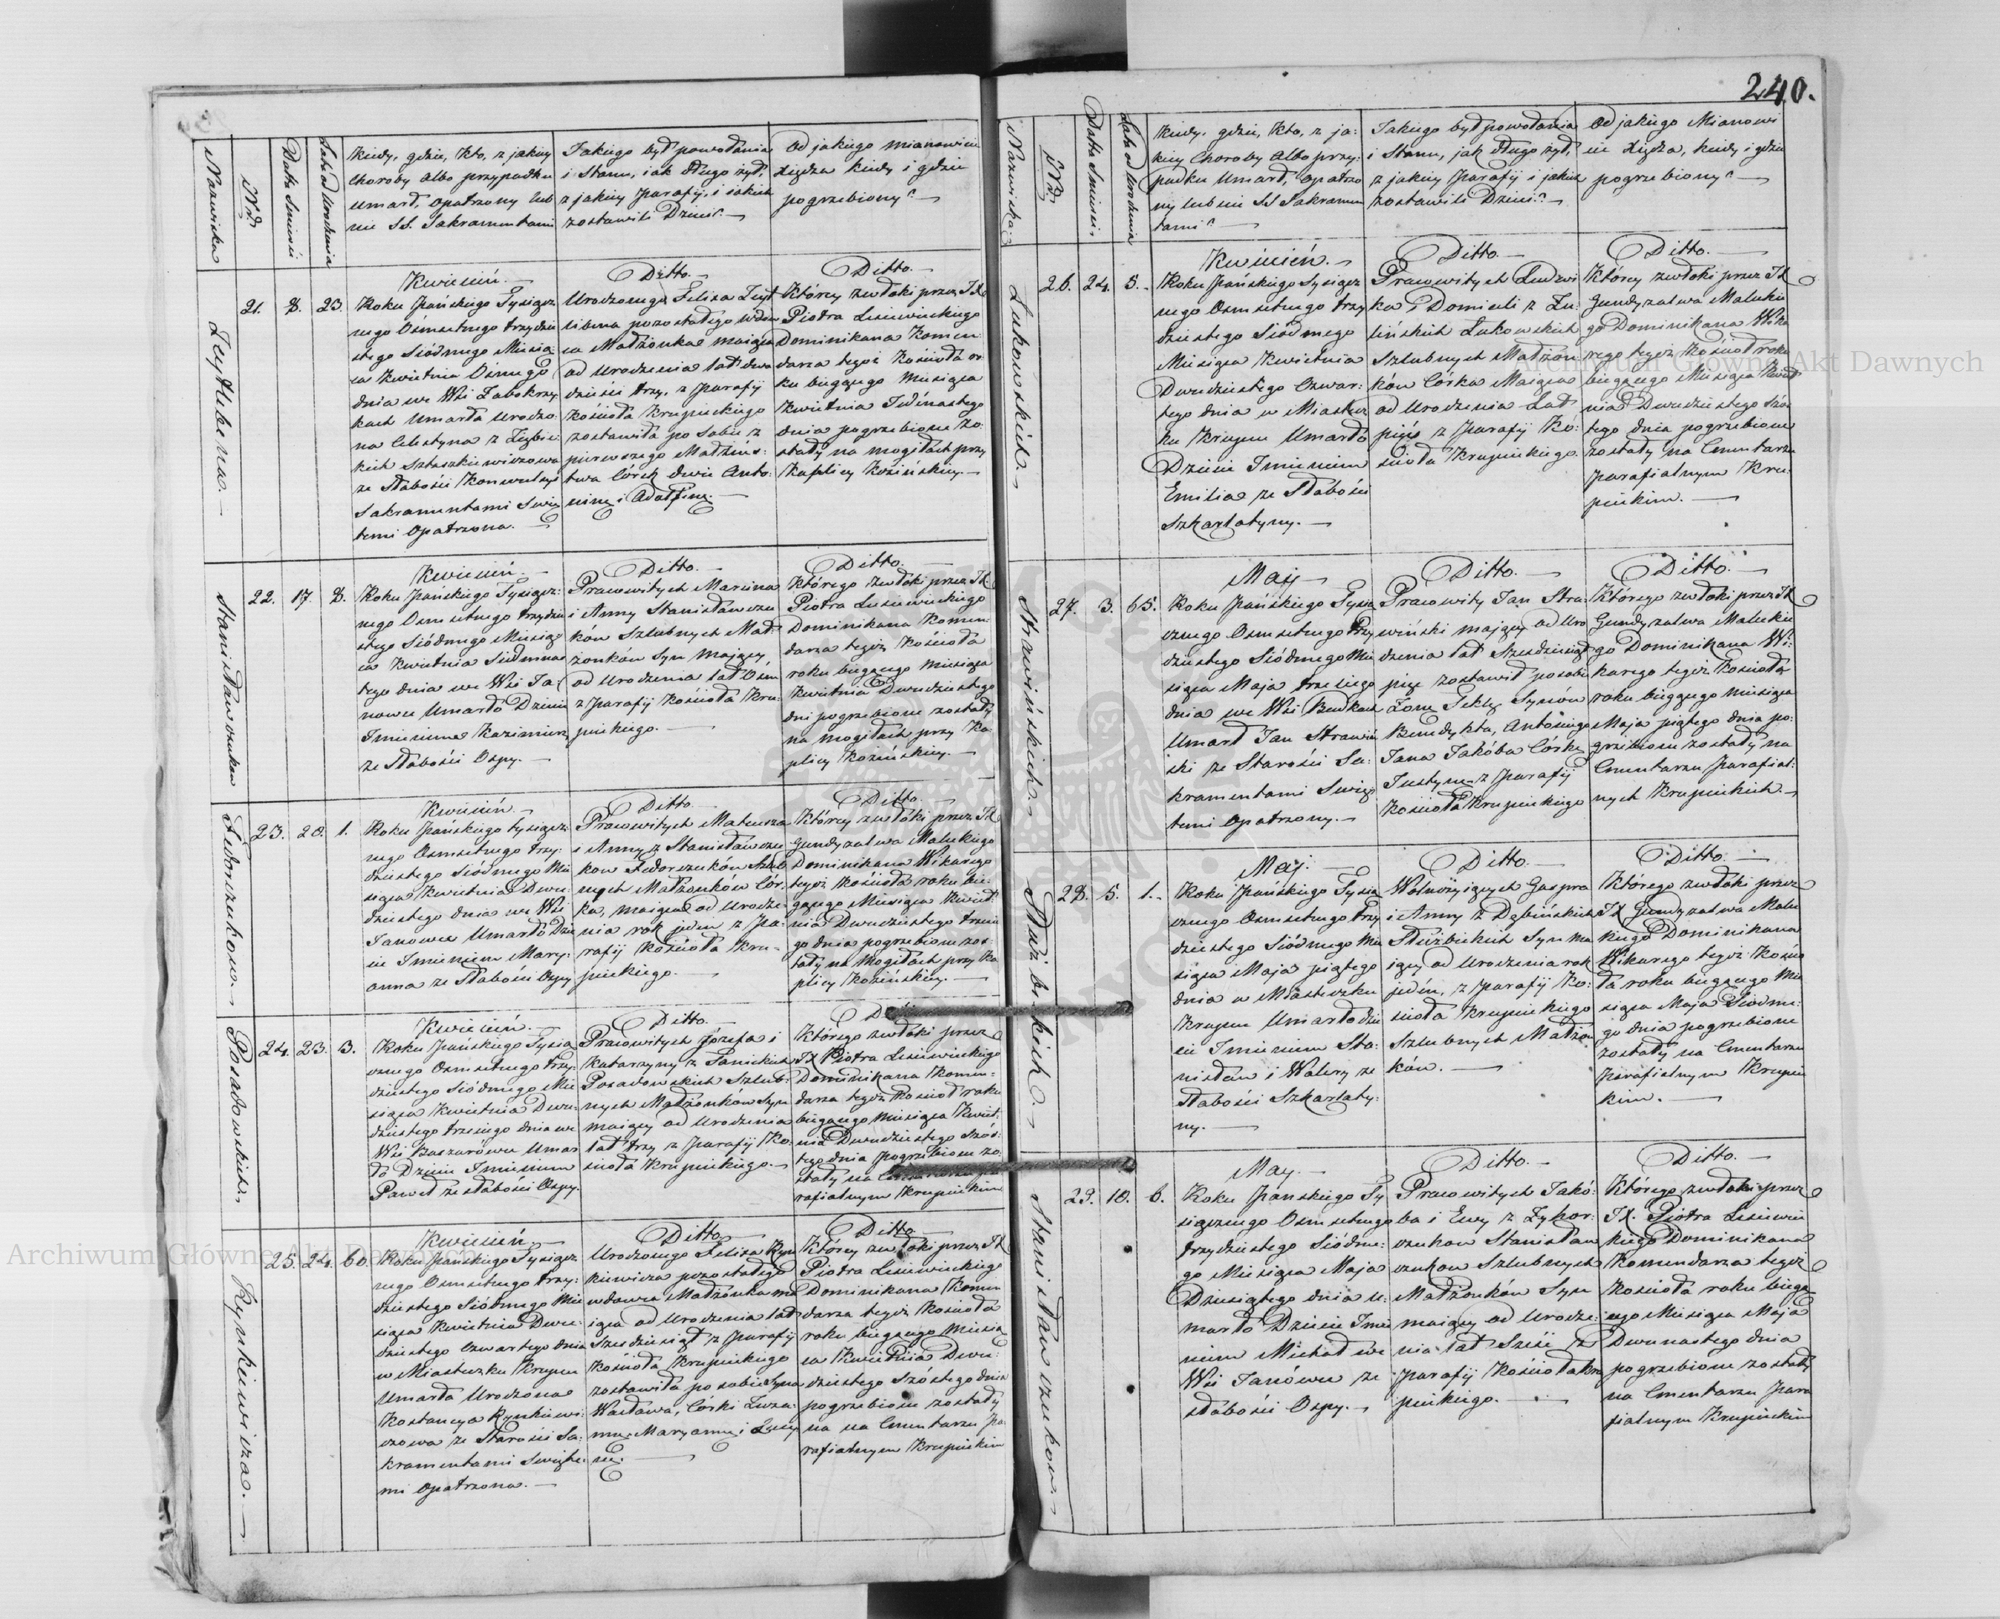 240.
Nazwiska
Nro
Data Śmierci
Lata od Urodzenia
Kiedy, gdzie, Kto, z jakiej
Choroby albo przypadku
Umarł, opatrzony lub
nie SS. Sakramentami
Jakiego był powołania
i Stanu, iak długo żył,
z jakiey Parafij, i iakich
zostawił Dzieci?
Od jakiego mianowicie
Xiędza kiedy i gdzie
pogrzebiony?
21. 8. 23.
Kwiecień.
Roku Pańskiego Tysiącz:
nego Ośmsetnego trzydzie
stego Siódmego Miesią
ca Kwietnia Osmego
dnia we Wsi Zabokrzy
kach Umarła Urodzo
na Celestyna z
ze Słabości Konwulsyi
Sakramentami Swię
temi Opatrzona.
Ditto.
Urodzonego Felixa
pozostałego wdow
ca Małżonka maiąca
od Urodzenia lat dwa
dzieścia trzy, z Parafij
Kościoła Krupieckiego
zostawiła po sobie z
pierwszego Małżeńs:
twa Córek dwie Anto:
ninę i Adolfinę.
Ditto.
Którey zwłoki przez JX
Piotra Lisiewickiego
Dominikana Komen
darza tegoż Kościoła ro
ku biegącego Miesiąca
Kwietnia Jedenastego
dnia pogrzebione zo:
stały na mogiłach przy
Kaplicy Kozińskiey.
Stanisławczuków
22. 17. 8.
Kwiecień.
Roku Pańskiego Tysiącz:
nego Osmsetnego trzydzie
stego Siódmego Miesią
ca Kwietnia Siedmnas
tego dnia we Wsi Ja
nowce Umarło Dziecie
Imieniem Kazimierz
ze Słabości Ospy.
Ditto.
Pracowitych Marcina
i Anny Stanisławczu
ków Szlubnych Mał
żonków Syn maiący
od Urodzenia lat Ośm
z Parafij Kościoła Kru
pieckiego.
Ditto.
Którego zwłoki przez JX
Piotra Lisiewickiego
Dominikana Komen
darza tegoż Kościoła
roku biegącego Miesiąca
Kwietnia Dwudziestego
dnia pogrzebione zostały
na mogiłach przy Ka
plicy Kozińskiey.
Fedorczuków
23. 20. 1.
Kwiecień.
Roku Pańskiego tysiącz:
nego Osmsetnego trzy:
dziestego Siódmego Mie
siąca Kwietnia Dwu:
dziestego dnia we Wsi
Janowce Umarło Dzie
cie Imieniem Mary:
anna ze Słabości Ospy
Ditto.
Pracowitych Mateusza
i Anny z Stanisławczu
ków Fedorczuków Szlub
nych Małżonków Cór:
ka, maiąca od Urodze
nia rok jeden z Pa:
rafij Kościoła Kru:
pieckiego.
Ditto.
Którey zwłoki przez JX
Gundyzalwa Maleckiego
Dominikana Wikarego
tegoż Kościoła roku bie
gącego Miesiąca Kwiet
nia Dwudziestego trzecie
go dnia pogrzebione zos
tały na Mogiłach przy Ka
plicy Kozińskiey.
Posadowskich
24. 23. 3.
Kwiecień.
Roku Pańskiego Tysią
cznego Osmsetnego trzy:
dziestego Siódmego Mie
siąca Kwietnia Dwu:
dziestego trzeciego dnia we
Wsi Baszarówce Umar
ło Dziecie Imieniem
Paweł ze słabości Ospy.
Ditto.
Pracowitych Józefa i
Katarzyny z Panickich
Posadowskich Szlub:
nych Małżonków Syn
maiący od Urodzenia
lat trzy z Parafij Ko:
ścioła Krupieckiego.
Którego zwłoki przez
JX Piotra Lisiewickiego
Dominikana Komen:
darza tegoż Kościoł roku
biegącego Miesiąca Kwiet:
nia Dwudziestego Szós:
tego dnia pogrzebione zo
stały na Cmentarzu Pa
rafialnym Krupieckim
Rynkiewicza.
25. 24. 60.
Kwiecień.
Roku Pańskiego Tysiącz
nego Osmsetnego trzy:
dziestego Siódmego Mie
siąca Kwietnia Dwu:
dziestego Czwartego dnia
w Miasteczku Krupcu
Umarła Urodzona
Kostancya Rynkiewi:
czowa ze Starości Sa:
kramentami Swięte:
mi Opatrzona.
Ditto.
Urodzonego Felixa Ryn
kiewicza pozostałego
wdowca Małżonka ma
iąca od Urodzenia lat
Sześdziesiąt z Parafij
Kościoła Krupieckiego
zostawiła po sobie Syna
Wacława, Córki Zuza:
nnę, Maryannę i
Ditto
Którey zwłoki przez JX
Piotra Lisiewickiego
Dominikana Komen
darza tegoż Kościoła
roku biegącego Miesią
ca Kwietnia Dwu:
dziestego Szóstego dnia
pogrzebione zostały
na Cmentarzu Pa
rafialnym Krupieckim
Nazwiska
Nro
Data Śmierci
Lata od Urodzenia
Kiedy, gdzie, Kto, z ja:
kiey Choroby albo przy:
padku Umarł, opatrzo
ny lub nie SS Sakramen
tami?
Jakiego był powołania
i Stanu, jak długo żył,
z jakiey Parafij i jakich
zostawił Dzieci?
Od jakiego Mianowi
cie Xiędza, kiedy i gdzie
pogrzebiony?
Łukowskich
26. 24. 5.
Kwiecień.
Roku Pańskiego Tysiącz
nego Osmsetnego trzy
dziestego Siódmego
Miesiąca Kwietnia
Dwudziestego Czwar:
tego dnia w Miastecz
ku Krupcu Umarło
Dziecie Imieniem
Emilia ze Słabości
Szkarlatyny.
Ditto.
Pracowitych Ludwi
ka i Domiceli z
Łukowskich
Szlubnych Małżon
ków Córka Maiąca
od Urodzenia Lat
pięć z Parafij Ko:
ścioła Krupieckiego.
Ditto.
Którey zwłoki przez JX
Gundyzalwa Malecki
go Dominikana Wika
rego tegoż Kościoł roku
biegącego Miesiąca Kwiet
nia Dwudziestego Szós
tego dnia pogrzebione
zostały na Cmentarzu
Parafialnym Kru:
pieckim.
Strawińskich
27. 3. 65.
May
Roku Pańskiego Tysią
cznego Osmsetnego Trzy
dziestego Siódmego Mie
siąca Maja trzeciego
dnia we Wsi Beudkach
Umarł Jan Strawiń
ski ze Starości Sa:
kramentami Swię
temi Opatrzony.
Ditto.
Pracowity Jan Stra:
wiński maiący od Uro
dzenia lat Sześdziesiąt
pięć zostawił po sobie
Żonę Teklę, Synów
Benedykta, Antoniego
Jana Jakóba Córkę
Justynę z Parafij
Kościoła Krupieckiego
Ditto.
Którego zwłoki przez JX
Gundyzalwa Maleckie
go Dominikana Wi:
karego tegoż Kościoła
roku biegącego Miesiąca
Maja piątego dnia po:
grzebione zostały na
Cmentarzu Parafial:
nych Krupieckich.
Służbickich
28. 5. 1.
May.
Roku Pańskiego Tysią
cznego Osmsetnego Trzy
dziestego Siódmego Mie
siąca Maja piątego
dnia w Miasteczku
Krupcu Umarło Dzie
cie Imieniem Sta:
nisław i Walery ze
Słabości Szkarlaty:
ny.
Ditto.
Wolnożyiących Gaspra
i Anny z Dębińskich
Służbickich Syn ma
iący od Urodzenia rok
jeden, z Parafij Ko:
ścioła Krupieckiego
Szlubnych Małżon
ków.
Ditto.
Którego zwłoki przez
JX Gundyzalwa Malec
kiego Dominikana
Wikarego tegoż Kościo
ła roku biegącego Mie
siąca Maja Siódme:
go dnia pogrzebione
zostały na Cmentarzu
Parafialnym Krupiec
kim.
Stanisławczuków
29. 10. 6.
May.
Roku Pańskiego Ty
siącznego Osmsetnego
trzydziestego Siódme:
go Miesiąca Maja
Dziesiątego dnia u:
marło Dziecie Imie
niem Michał we
Wsi Janówce ze
słabości Ospy.
Ditto.
Pracowitych Jakó:
ba i Ewy z
Stanisław
czuków Szlubnych
Małżonków Syn
maiący od Urodze:
nia lat Sześć z
Parafij Kościoła Kru
pieckiego.
Ditto.
Którego zwłoki przez
JX. Piotra Lisiewic
kiego Dominikana
Komendarza tegoż
Kościoła roku biegą
cego Miesiąca Maja
Dwunastego dnia
pogrzebione zostały
na Cmentarzu Para
fialnym Krupieckim
Archiwum Główne Akt Dawnych
Archiwum Główne Akt Dawnych